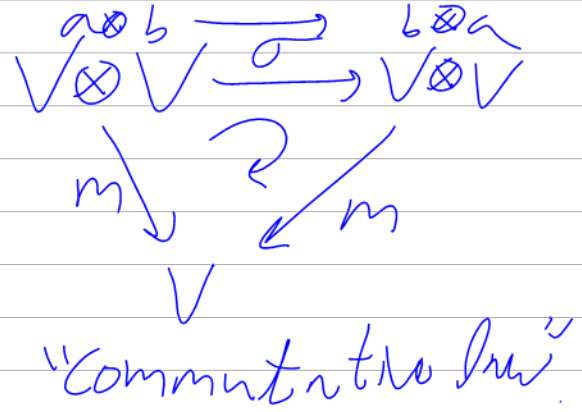 a⊗b → b⊗a
V⊗V σ→ V⊗V
m m
V
"commutative law"